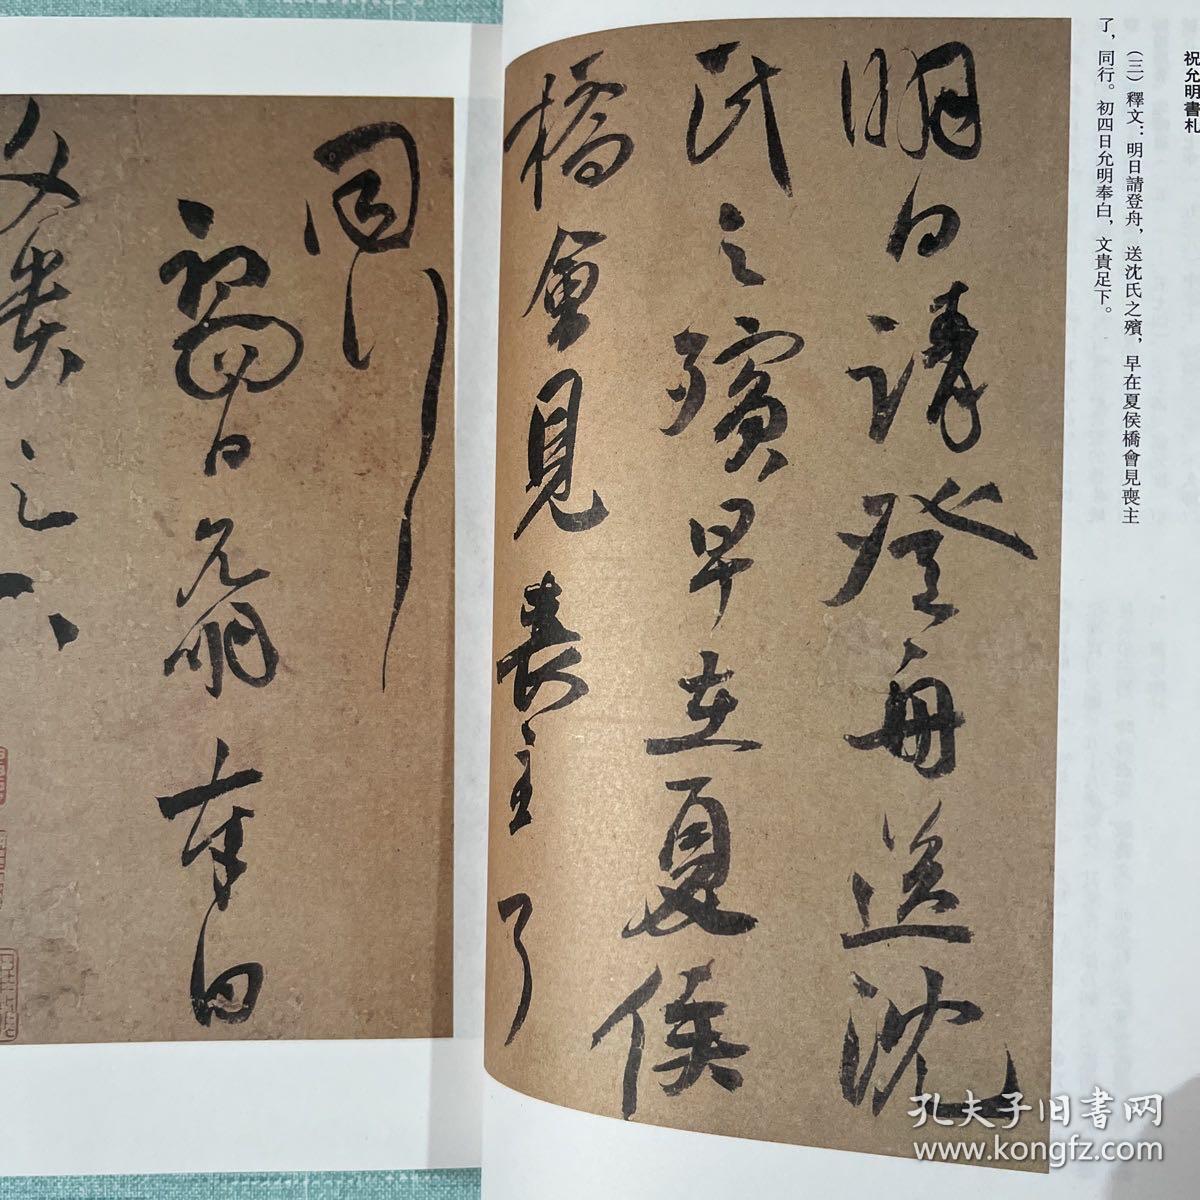 祝允明書札
（三）釋文：明日請登舟，送沈氏之殯，早在夏侯橋會見喪主
了，同行。初四日允明奉白，文貴足下。
明日請登舟送沈
氏之殯早在夏侯
橋會見喪主了
同行
初四日允明奉白
文貴足下
孔夫子旧書网
www.kongfz.com